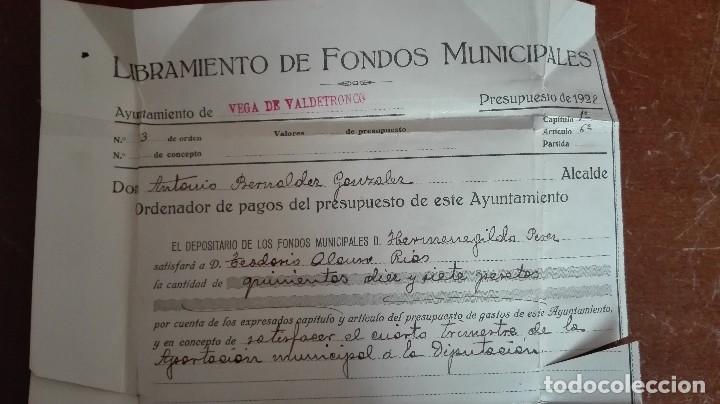 LIBRAMIENTO DE FONDOS MUNICIPALES
Ayuntamiento de VEGA DE VALDETRONCO Presupuesto de 1922
N.º 3 de orden Valores de presupuesto Capítulo 1º
Artículo 6º
N.º de concepto Partida
Don Antonio Bernaldez Gonzalez Alcalde
Ordenador de pagos del presupuesto de este Ayuntamiento
EL DEPOSITARIO DE LOS FONDOS MUNICIPALES D. Hermenegildo Perez
satisfará a D. Teodoris Alonso Rios
la cantidad de quinientas diez y siete pesetas
por cuenta de los expresados capítulo y artículo del presupuesto de gastos de este Ayuntamiento,
y en concepto de satisfacer el cuarto trimestre de la
Aportación municipal a la Diputacion
todocoleccion.net